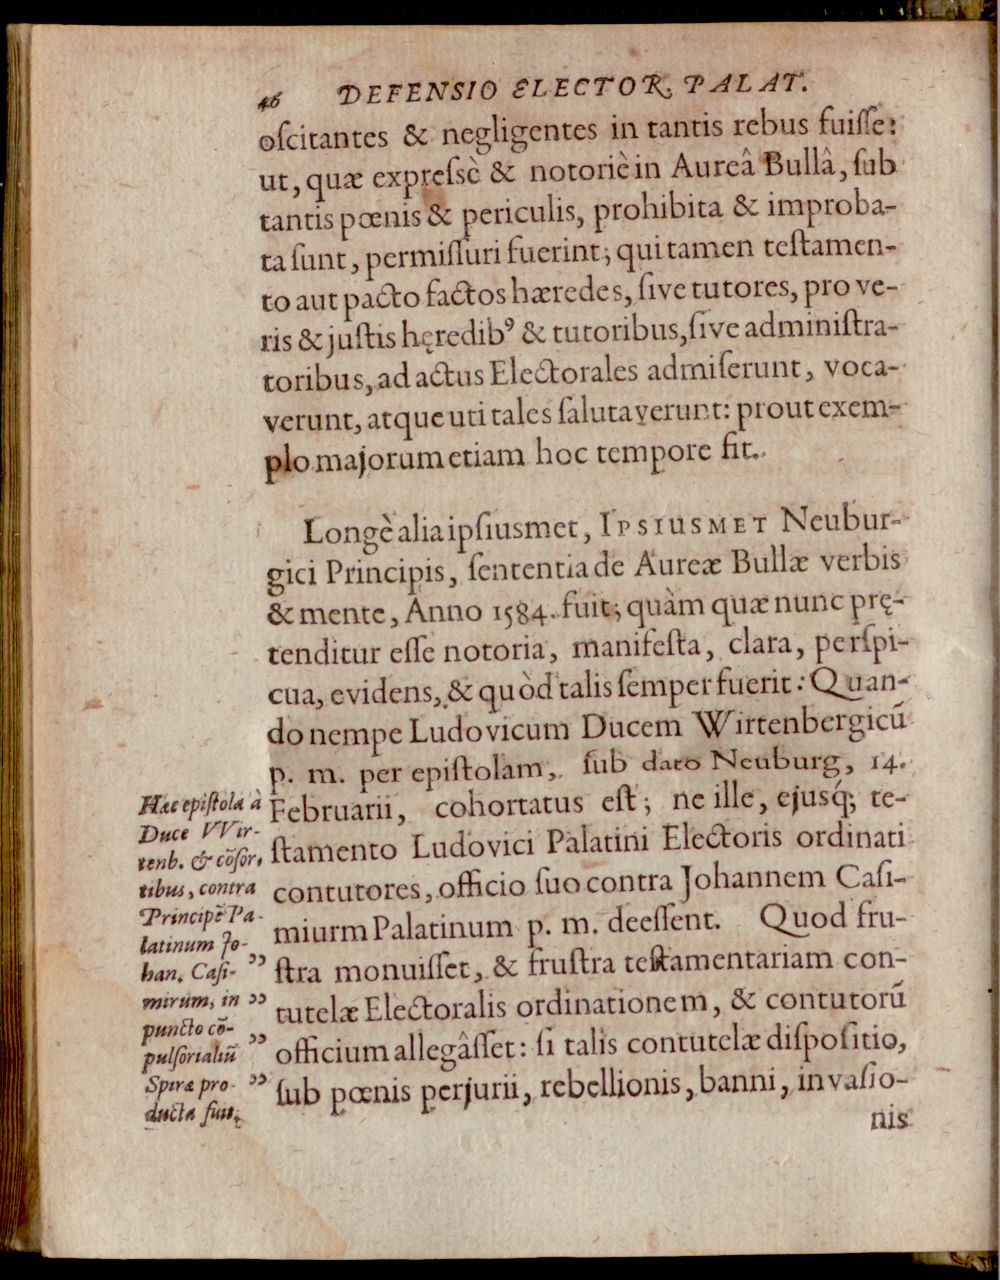 46 DEFENSIO ELECTOR. PALAT.
oſcitantes & negligentes in tantis rebus fuiſſe:
ut, quæ expreſsè & notoriè in Aureâ Bullâ, ſub
tantis pœnis & periculis, prohibita & improba-
ta ſunt, permiſſuri fuerint; qui tamen teſtamen-
to aut pacto factos hæredes, ſive tutores, pro ve-
ris & juſtis hęredibꝰ & tutoribus, ſive adminiſtra-
toribus, ad actus Electorales admiſerunt, voca-
verunt, atque uti tales ſalutaverunt: prout exem-
plo majorum etiam hoc tempore fit.
Longè alia ipſiusmet, IPSIUSMET Neubur-
gici Principis, ſententia de Aureæ Bullæ verbis
& mente, Anno 1584. fuit; quàm quæ nunc prę-
tenditur eſſe notoria, manifeſta, clara, perſpi-
cua, evidens, & quòd talis ſemper fuerit: Quan-
do nempe Ludovicum Ducem Wirtenbergicū
p. m. per epiſtolam, ſub dato Neuburg, 14.
Februarii, cohortatus eſt; ne ille, ejusq́; te-
ſtamento Ludovici Palatini Electoris ordinati
contutores, officio ſuo contra Johannem Caſi-
miurm Palatinum p. m. deeſſent. Quod fru-
ſtra monuiſſet, & fruſtra teſtamentariam con-
tutelæ Electoralis ordinationem, & contutorū
officium allegâſſet: ſi talis contutelæ diſpoſitio,
ſub pœnis perjurii, rebellionis, banni, invaſio-
nis
Hæc epiſtola à
Duce VVir-
tenb. & cōſor,
tibus, contra
Principē Pa-
latinum Jo-
han. Caſi- ”
mirum, in ”
puncto cō-
pulſorialiū ”
Spiræ pro- ”
ducta fuit.